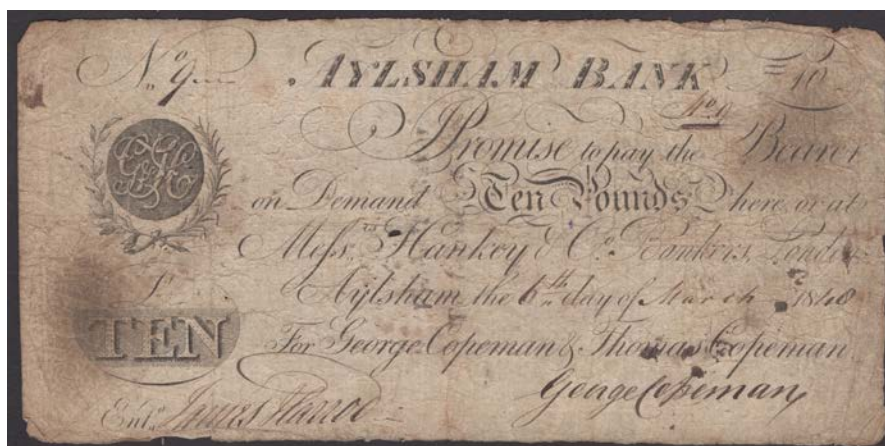 No. 9 AYLSHAM BANK £10
I Promise to pay the Bearer
on Demand Ten Pounds here or at
Messrs. Hankey & Co. Bankers, London
Aylsham the 6th day of March 1840
For George Copeman & Thomas Copeman
TEN
Entd. James Harrod
George Copeman